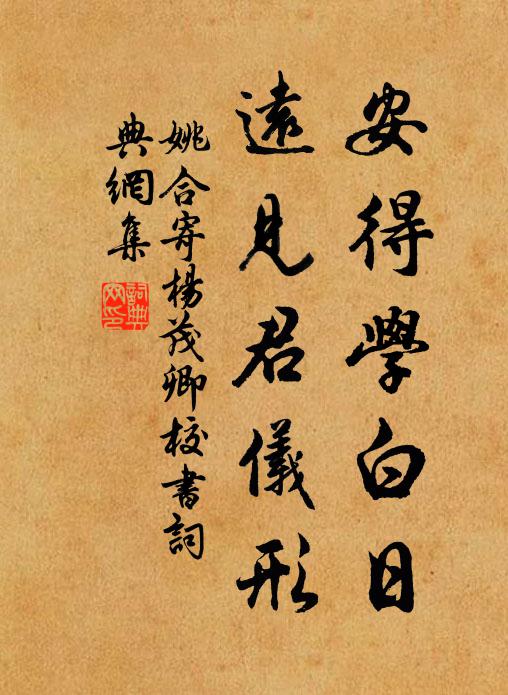 安得學白日
遠見君儀形
姚合寄楊茂卿校書詞
典網集
詞典
网印